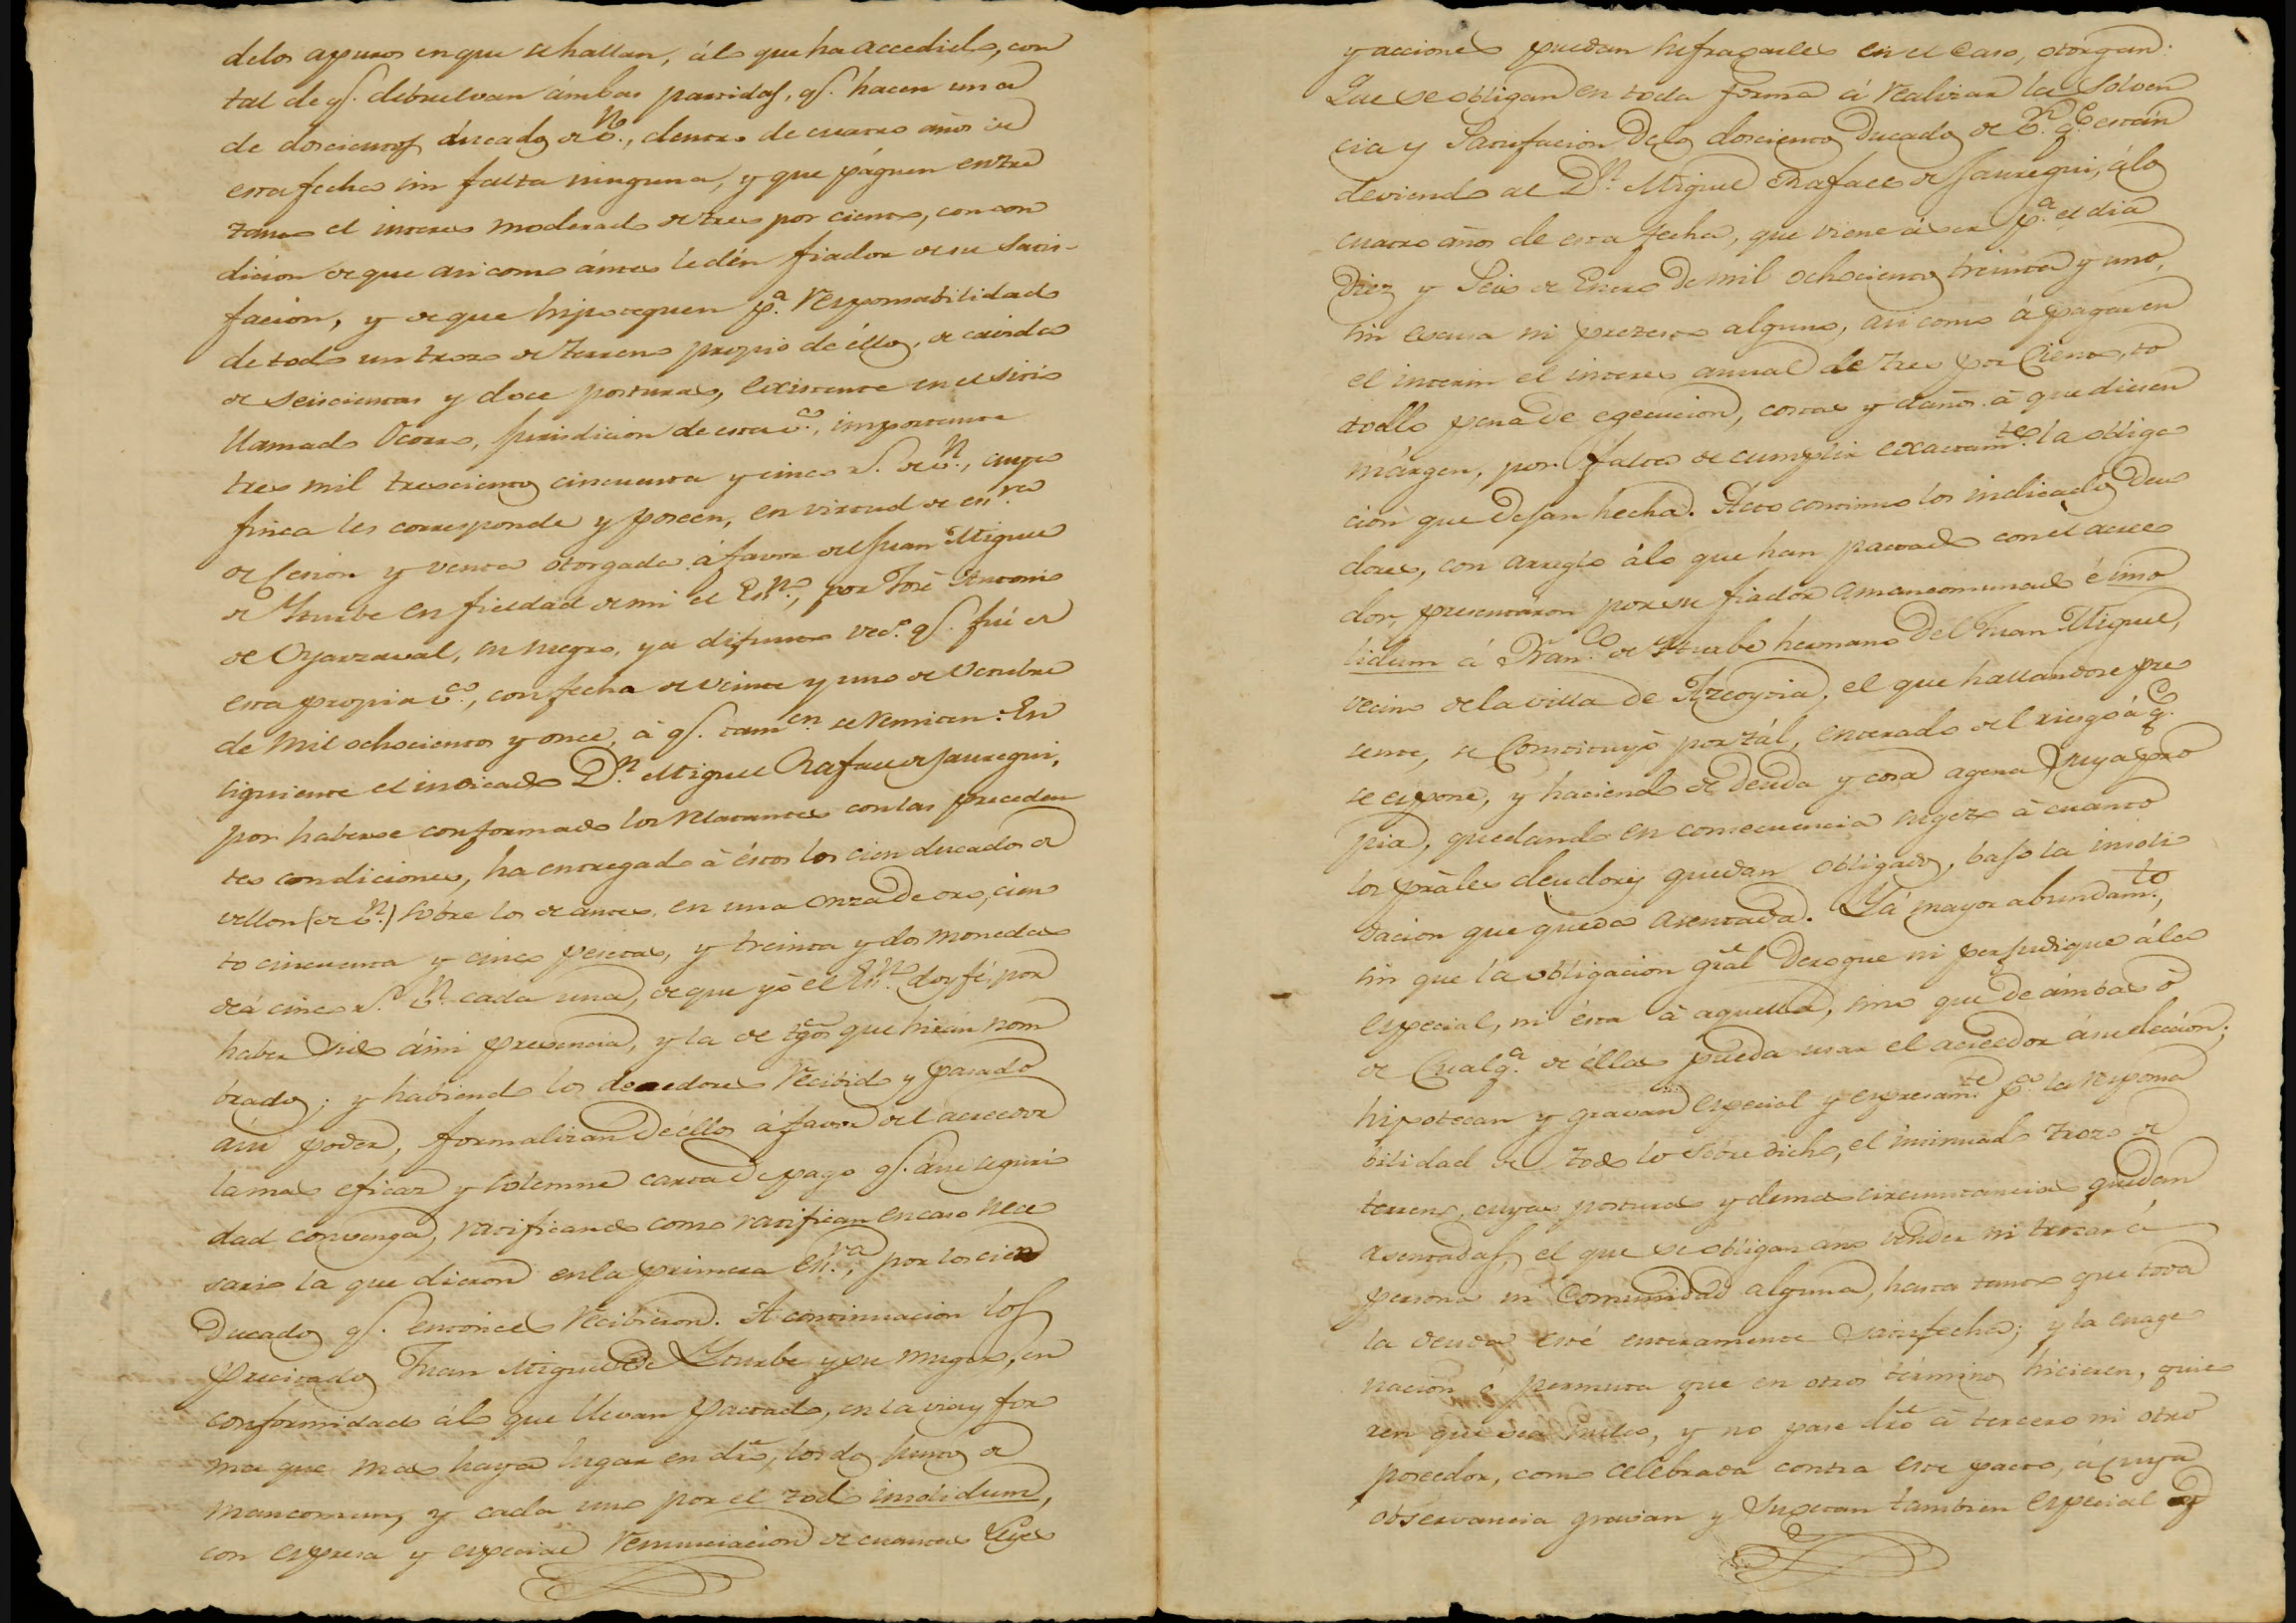 delos apuros en que se hallan, álo que ha accedido, con
tal de q.e debuelvan ámbas partidas, q.e hacen una
de doscientos ducados de v.n, dentro de cuatro años de
esta fecha sin falta ninguna, y que páguen entre
tanto el interes moderado de tres por ciento, con con
dicion de que asi como ántes le dén fiador de su satis-
facion, y de que hipotequen p.a responsabilidad
de todo un trozo de terreno propio de éllos, de cavida
de seiscientas y doce posturas, existente en el sitio
llamado Ocorro, jurisdicion de esta v.a, importante
tres mil trescientos cincuenta y cinco r.s de v.n, cuya
finca les corresponde y poseen, en virtud de es.ra
de cesion y venta otorgada á favor del Juan Miguel
de Yturbe en fieldad de mi el Es.no, por José Antonio
de Oyarzaval, su suegro, ya difunto vec.o q.e fué de
esta propia v.a, con fecha de veinte y uno de Octubre
de mil ochocientos y once, à q.e tam.en se remiten: En
siguiente el indicado D.n Miguel Rafael de Jauregui,
por haberse conformado los relatantes con las preceden
tes condiciones, ha entregado à éstos los cien ducados de
vellon (de v.n) sobre los de antes, en una onza de oro, cien
to cincuenta y cinco pesetas, y treinta y dos monedas
de á cinco r.s v.n cada una, de que yo el Es.no doy fé, por
haber sido á mi presencia, y la de tgos que hirán nom
brados; y habiendo los deuedores recibido y pasado
ásu poder, formalizan de éllos á favor del acreedor
la mas eficaz y solemne carta de pago q.e ásu seguri
dad convenga, ratificando como ratifican en caso nece
sario la que dieron en la primera es.ra, por los cien
Ducados q.e entonces recibieron. A continuacion los
precitados Juan Miguel de Yturbe y su muger, en
conformidad álo que llevan pactado, en la via y for
ma que mas haya lugar en dro, los dos juntos de
mancomun, y cada uno por el todo insolidum,
con expresa y especial renunciacion de cuantas leyes
y acciones puedan sufragarles en el caso, otorgan:
Que se obligan en toda forma á realizar la solven
cia y satisfacion de los doscientos Ducados de v.n q.e están
deviendo al D.n Miguel Rafael de Jauregui, álos
cuatro años de esta fecha, que viene á ser p.a el dia
Diez y Seis de Enero de mil ochocientos treinta y uno,
sin escusa ni pretesto alguno, asi como á pagar en
el interin el interes anual de tres por ciento, to
do ello pena de egecucion, costas y daños à que diesen
márgen, por falta de cumplir exactam.te la obliga
cion que dejan hecha. Acto continuo los indicados deu
dores, con arreglo álo que han pactado con el acree
dor, presentaron por su fiador amancomunado é inso
lidum á Fran.co de Yturbe hermano del Juan Miguel,
vecino de la villa de Azcoytia, el que hallandose pre
sente, se constituyó por tál, enterado del riesgo á q.e
se expone, y haciendo de deuda y cosa agena suya pro
pia, quedando en consecuencia sugeto à cuanto
los prãles deudores quedan obligados, bajo la insoli
dacion que queda asentada. Y á mayor abundam.to,
sin que la obligacion gral derogue ni perjudique ála
especial, ni ésta à aquella, sino que de ámbas ó
de cualq.a de éllas pueda usar el acreedor ásu eleccion;
hipotecan y gravan especial y expresam.te p.a la responsa
bilidad de todo lo sobre dicho, el insinuado trozo de
terreno, cuyas posturas y demas circunstancias quedan
asentadas, el que se obligan á no vender ni trocar á
persona ni Comunidad alguna, hasta tanto que toda
la deuda esté enteramente satisfecha; y la enage
nacion ó permuta que en otros términos hicieren, quie
ren que sea nula, y no pase dro à tercero ni otro
poseedor, como celebrada contra este pacto, á cuya
observancia gravan y sugetan tambien especial y